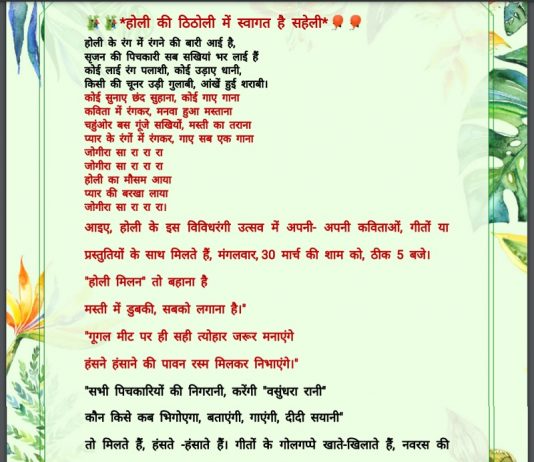 *होली की ठिठोली में स्वागत है सहेली*
होली के रंग में रंगने की बारी आई है,
सृजन की पिचकारी सब सखियां भर लाई हैं
कोई लाई रंग पलाशी, कोई उड़ाए धानी,
किसी की चूनर उड़ी गुलाबी, आंखें हुई शराबी।
कोई सुनाए छंद सुहाना, कोई गाए गाना
कविता में रंगकर, मनवा हुआ मस्ताना
चहुंओर बस गूंजे सखियों, मस्ती का तराना
प्यार के रंगों में रंगकर, गाए सब एक गाना
जोगीरा सा रा रा रा
जोगीरा सा रा रा रा
जोगीरा सा रा रा रा
होली का मौसम आया
प्यार की बरखा लाया
जोगीरा सा रा रा रा।
आइए, होली के इस विविधरंगी उत्सव में अपनी- अपनी कविताओं, गीतों या
प्रस्तुतियों के साथ मिलते हैं, मंगलवार, 30 मार्च की शाम को, ठीक 5 बजे।
"होली मिलन" तो बहाना है
मस्ती में डुबकी, सबको लगाना है।"
"गूगल मीट पर ही सही त्योहार जरूर मनाएंगे
हंसने हंसाने की पावन रस्म मिलकर निभाएंगे।"
"सभी पिचकारियों की निगरानी, करेंगी "वसुंधरा रानी"
कौन किसे कब भिगोएगा, बताएंगी, गाएंगी, दीदी सयानी"
तो मिलते हैं, हंसते -हंसाते हैं। गीतों के गोलगप्पे खाते-खिलाते हैं, नवरस की